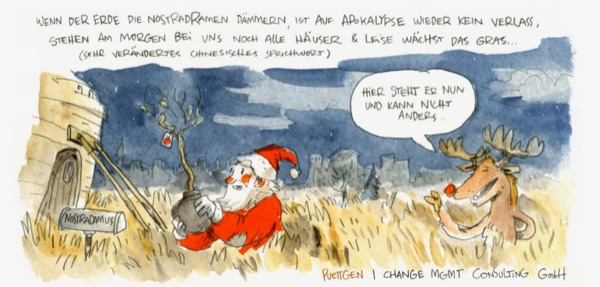 WENN DER ERDE DIE NOSTRADRAMEN DÄMMERN, IST AUF APOKALYPSE WIEDER KEIN VERLASS,
STEHEN AM MORGEN BEI UNS NOCH ALLE HÄUSER & LEISE WÄCHST DAS GRAS...
(SEHR VERÄNDERTES CHINESISCHES SPRICHWORT)
HIER STEHT ER NUN
UND KANN NICHT
ANDERS...
NOSTRADAMUS
PUETTGEN | CHANGE MGMT CONSULTING GmbH